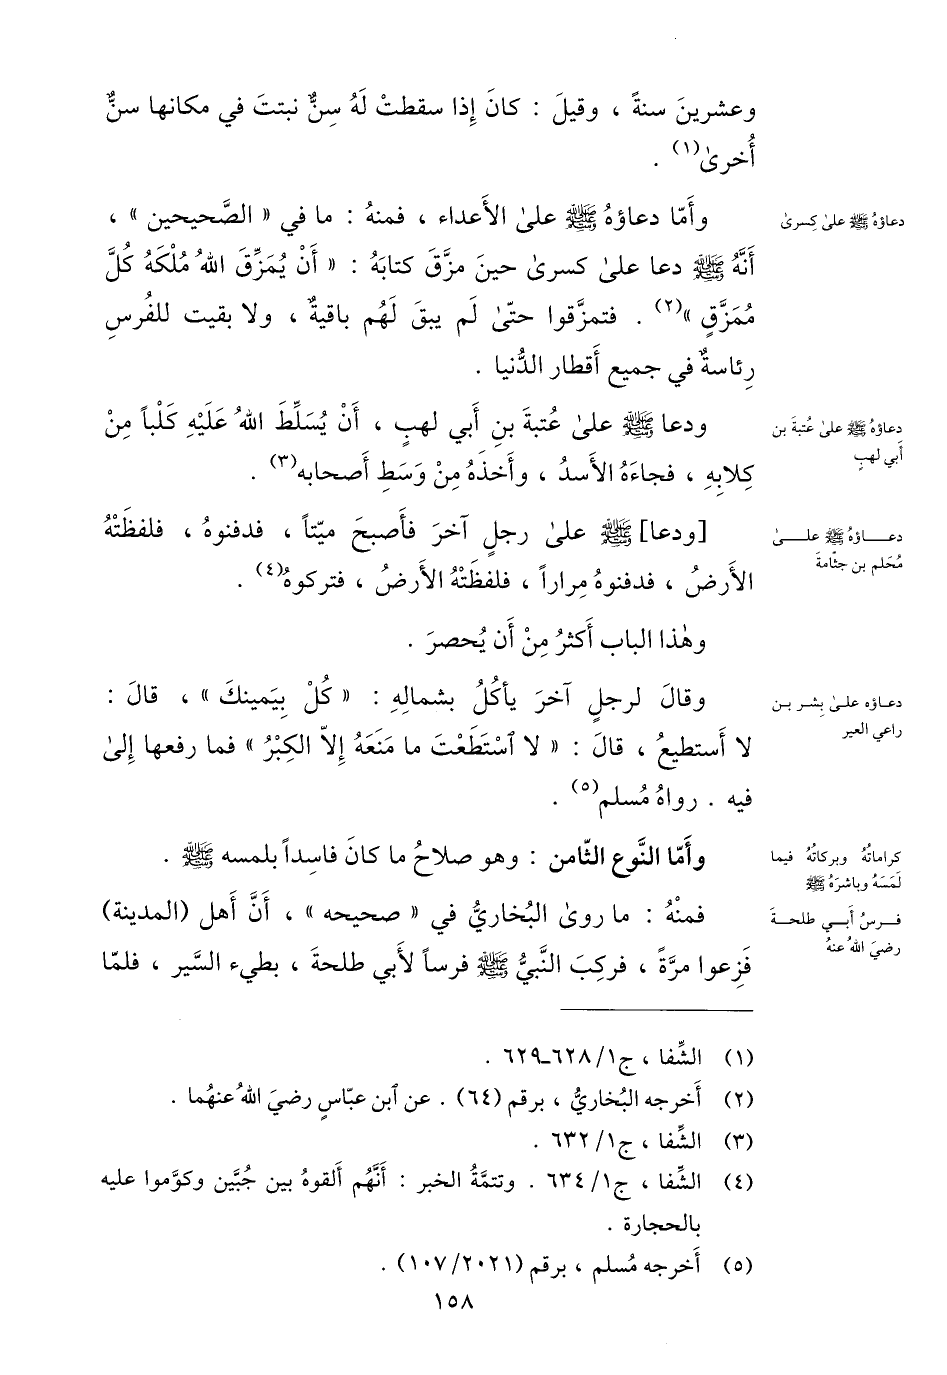 وعشرينَ سنةً ، وقيلَ : كانَ إِذا سقطتْ لَهُ سِنٌّ نبتتَ في مكانها سنٌّ
أُخرىٰ(١) .
دعاؤهُ ﷺ علىٰ كِسرىٰ
وأَمّا دعاؤهُ ﷺ علىٰ الأَعداء ، فمنهُ : ما في « الصَّحيحين » ،
أَنَّهُ ﷺ دعا علىٰ كسرىٰ حينَ مزَّقَ كتابَهُ : « أَنْ يُمَزِّقَ اللهُ مُلْكَهُ كُلَّ
مُمَزَّقٍ »(٢) . فتمزَّقوا حتّىٰ لَم يبقَ لَهُم باقيةٌ ، ولا بقيت للفُرسِ
رِئاسةٌ في جميع أَقطار الدُّنيا .
دعاؤهُ ﷺ علىٰ عُتبةَ بن
أَبي لهبٍ
ودعا ﷺ علىٰ عُتبةَ بنِ أَبي لهبٍ ، أَنْ يُسَلِّطَ اللهُ عَلَيْهِ كَلْباً مِنْ
كِلابِهِ ، فجاءَهُ الأَسدُ ، وأَخذَهُ مِنْ وَسَطِ أَصحابه(٣) .
دعـــاؤهُ ﷺ علـــىٰ
مُحَلم بن جثّامةَ
[ودعا] ﷺ علىٰ رجلٍ آخرَ فأَصبحَ ميّتاً ، فدفنوهُ ، فلفظَتْهُ
الأَرضُ ، فدفنوهُ مِراراً ، فلفظَتْهُ الأَرضُ ، فتركوهُ(٤) .
وهٰذا الباب أَكثرُ مِنْ أَن يُحصرَ .
دعـاؤه علـىٰ بِشـر بـن
راعي العير
وقالَ لرجلٍ آخرَ يأكُلُ بشمالِهِ : « كُلْ بِيَمينكَ » ، قالَ :
لا أَستطيعُ ، قالَ : « لا ٱسْتَطَعْتَ ما مَنَعَهُ إِلاّ الكِبْرُ » فما رفعها إِلىٰ
فيه . رواهُ مُسلم(٥) .
كراماتُهُ وبركاتُهُ فيما
لَمَسَهُ وباشرَهُ ﷺ
وأَمّا النَّوع الثّامن : وهو صلاحُ ما كانَ فاسِداً بلمسه ﷺ .
فـرسُ أَبـي طلحـةَ
رضيَ اللهُ عنهُ
فمنْهُ : ما روىٰ البُخاريُّ في « صحيحه » ، أَنَّ أَهل (المدينة)
فَزِعوا مرَّةً ، فركِبَ النَّبيُّ ﷺ فرساً لأَبي طلحةَ ، بطيء السَّير ، فلمّا
(١) الشِّفا ، ج١/ ٦٢٨ـ٦٢٩ .
(٢) أَخرجه البُخاريُّ ، برقم (٦٤) . عن ٱبن عبّاسٍ رضيَ اللهُ عنهُما .
(٣) الشِّفا ، ج١/ ٦٣٢ .
(٤) الشِّفا ، ج١/ ٦٣٤ . وتتمَّةُ الخبر : أَنَّهُم أَلقوهُ بين جُبَّين وكوَّموا عليه
بالحجارة .
(٥) أَخرجه مُسلم ، برقم (٢٠٢١/ ١٠٧) .
١٥٨